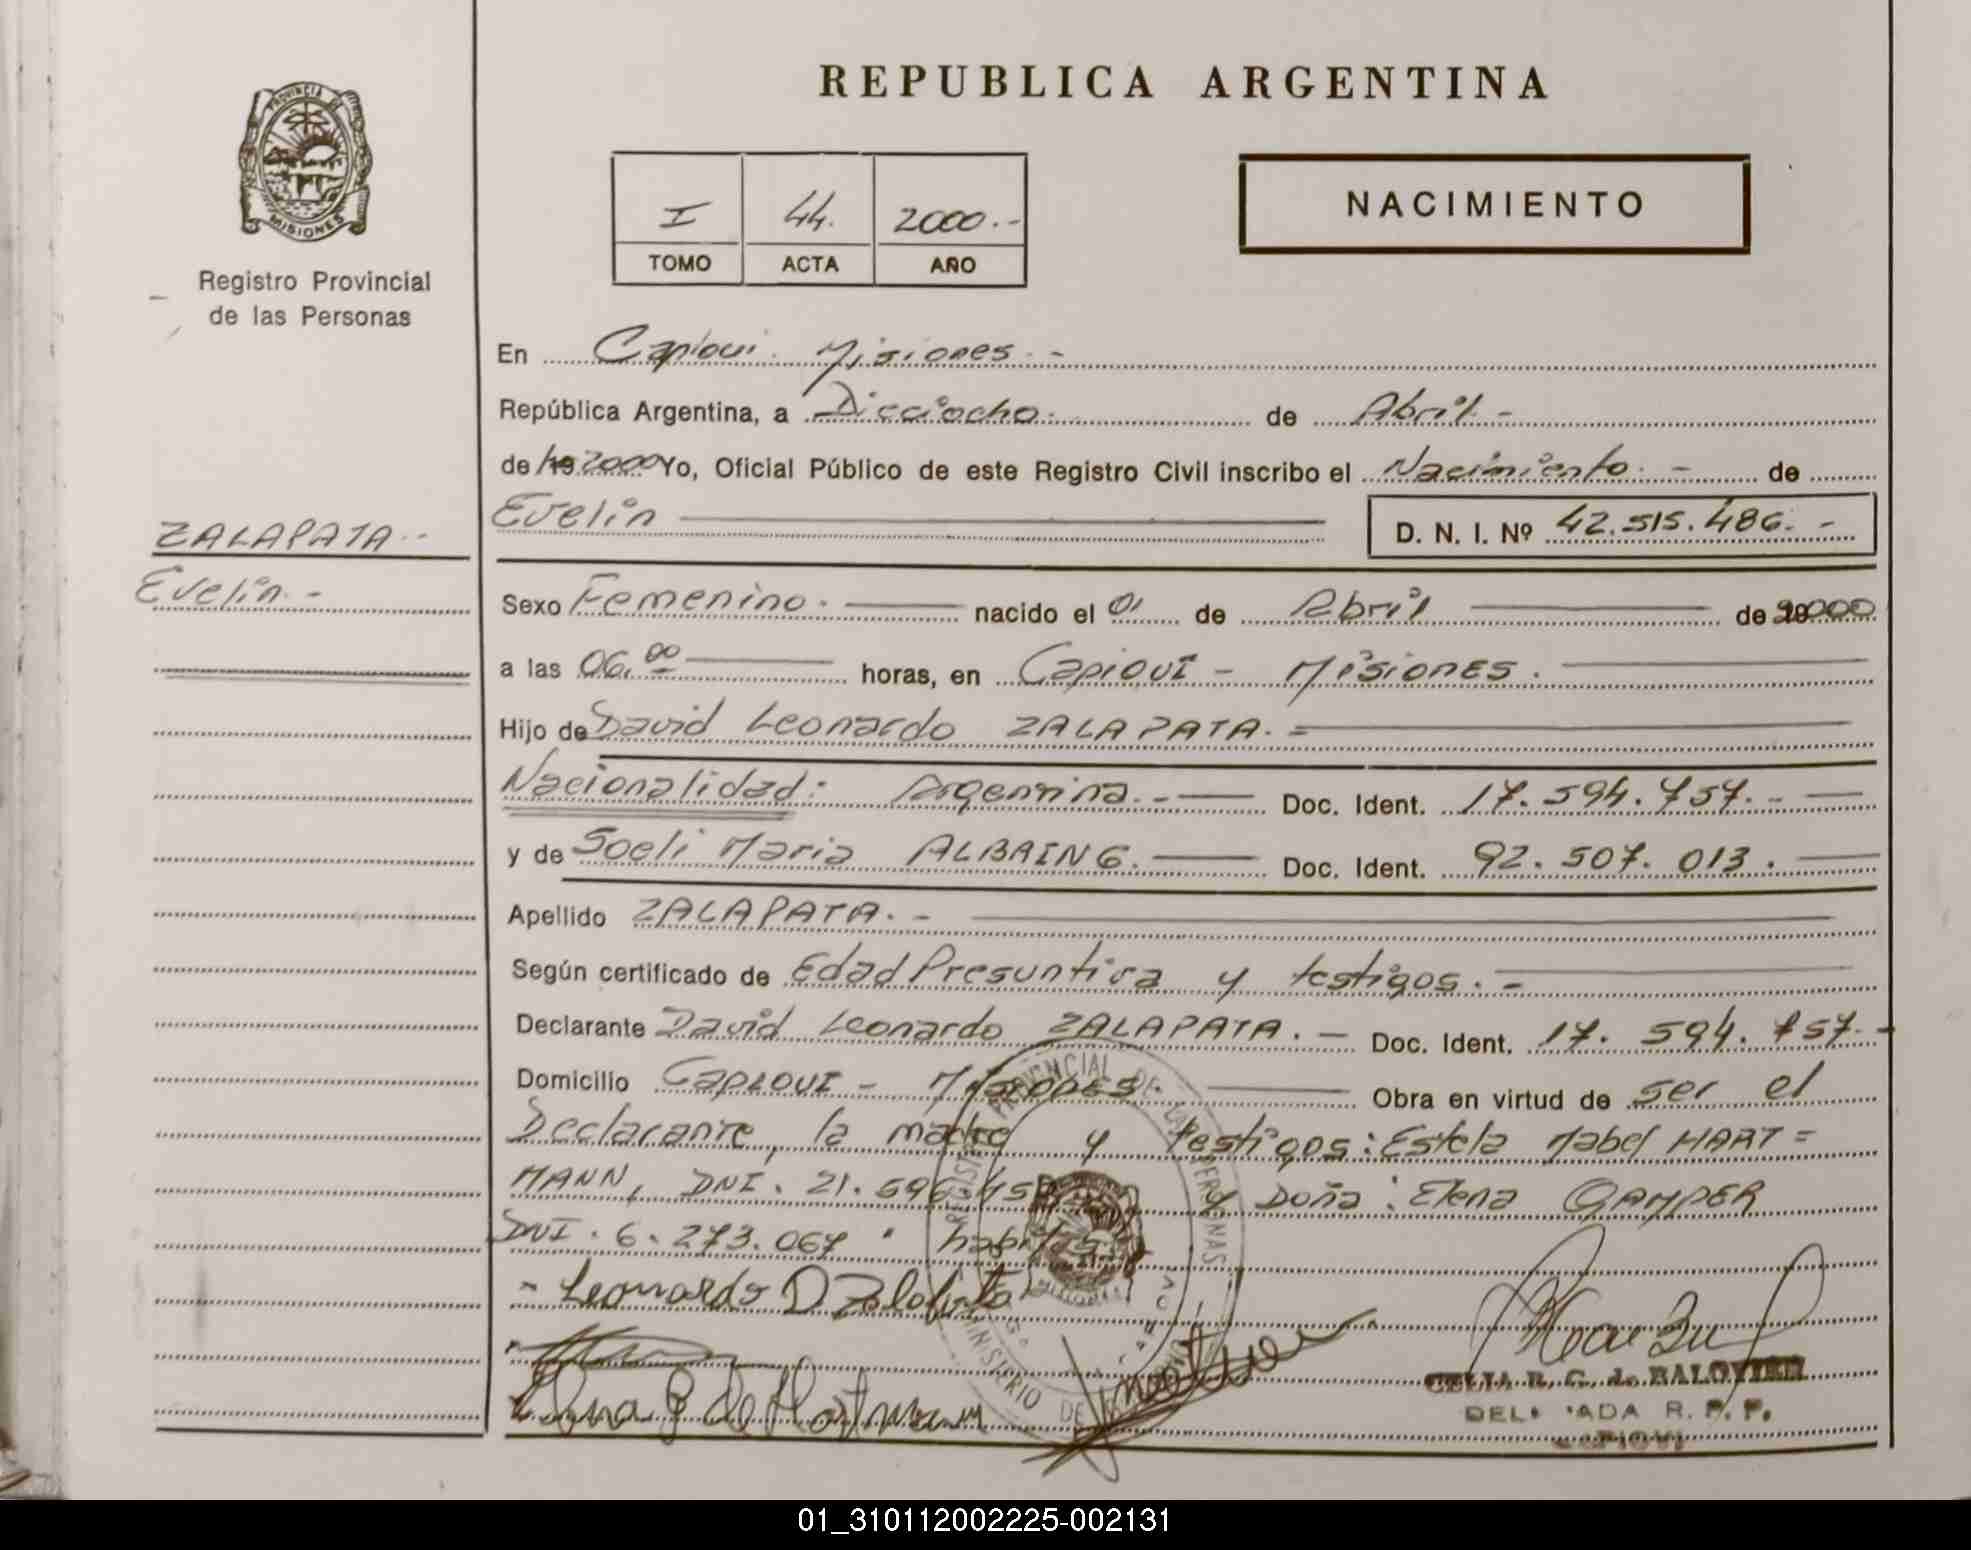 REPUBLICA ARGENTINA
PROVINCIA DE
MISIONES
Registro Provincial
de las Personas
I 44. 2000.-
TOMO ACTA AÑO
NACIMIENTO
En Capiovi. Misiones.-
República Argentina, a Dieciocho. de Abril.-
de 19 2000 Yo, Oficial Público de este Registro Civil inscribo el Nacimiento.- de
Evelin D. N. I. Nº 42.515.486.-
ZALAPATA.-
Evelin.-
Sexo Femenino. nacido el 01 de Abril de 2000
a las 06.00 horas, en Capiovi - Misiones.
Hijo de David Leonardo ZALAPATA.=
Nacionalidad: Argentina.- Doc. Ident. 17.594.757.-
y de Soeli Maria ALBAING. Doc. Ident. 92.507.013.
Apellido ZALAPATA.-
Según certificado de Edad Presuntiva y testigos.-
Declarante David Leonardo ZALAPATA.- Doc. Ident. 17.594.757.-
Domicilio Capiovi - Misiones. Obra en virtud de ser el
Declarante, la madre y testigos: Estela Mabel HART=
MANN, DNI. 21. y Doña: Elena GAMPER
DNI. 6.273.067
- Leonardo D Zalapata
Elena G de Hartmann
CELIA R. G. de BALOVIER
DEL ADA R. P. P.
CAPIOVI
REGISTRO PROVINCIAL DE LAS PERSONAS
MINISTERIO DE GOBIERNO
01_310112002225-002131